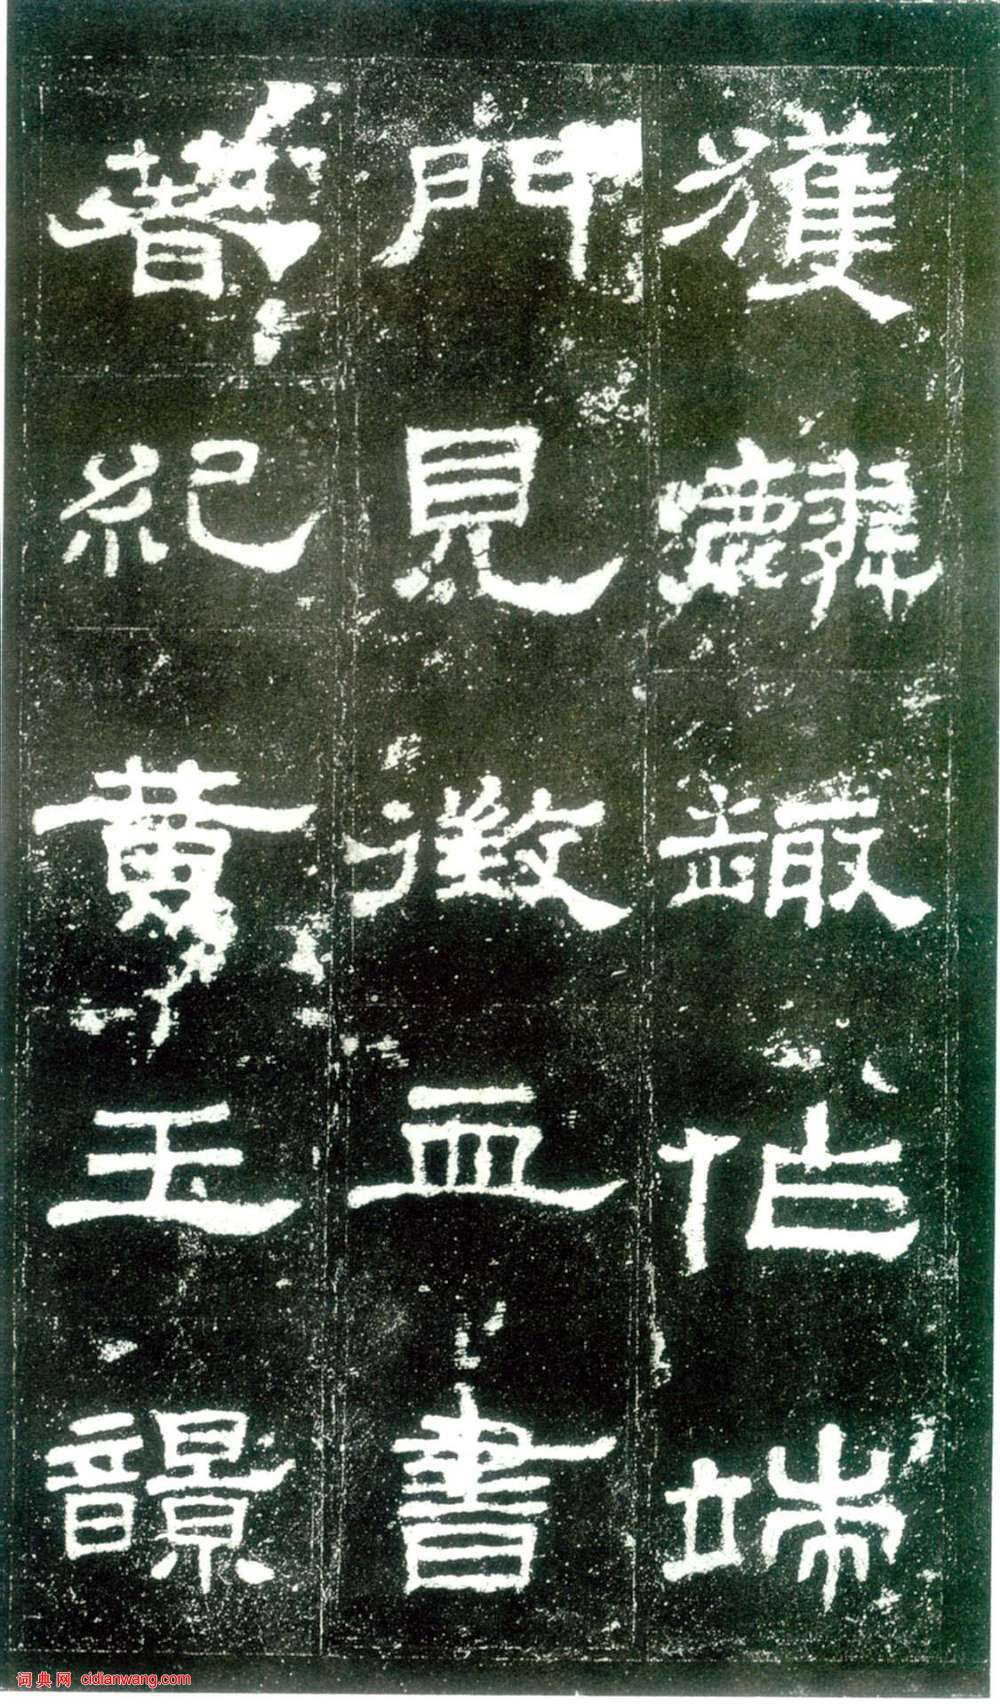 獲麟趣作端
門見徵血書
著紀黃玉䪫
词典网 cidianwang.com